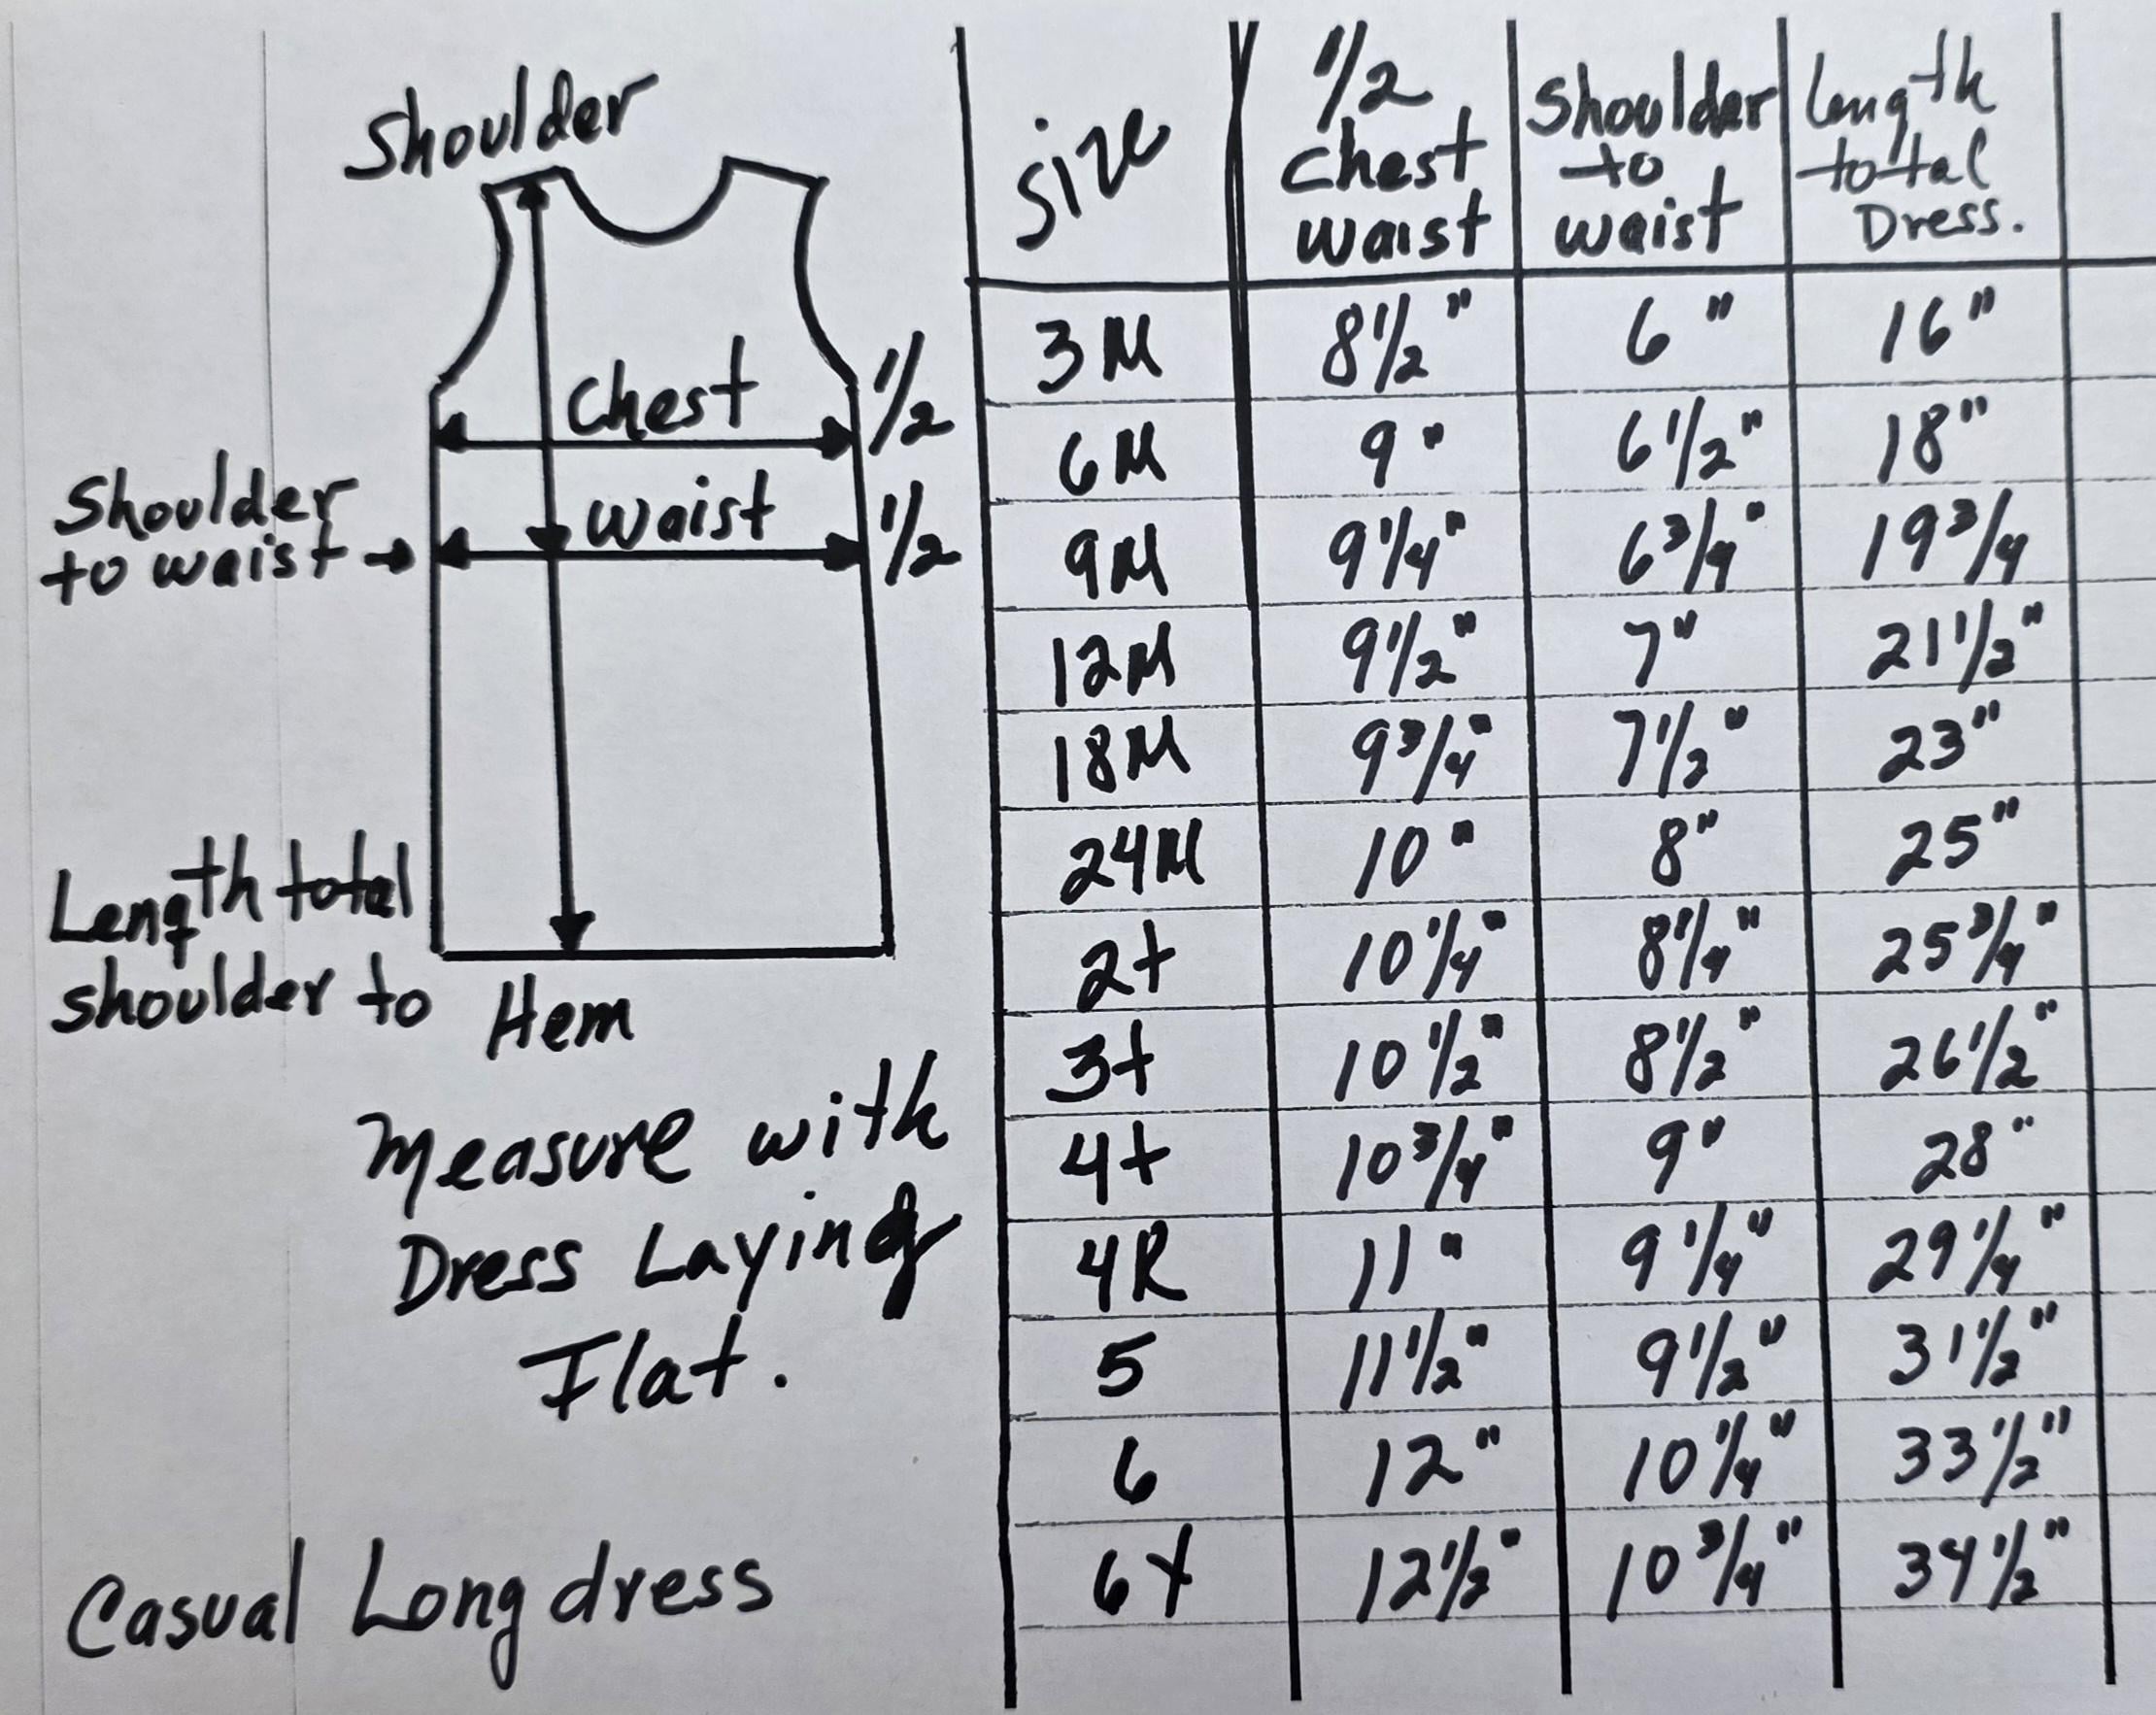 Shoulder
Chest 1/2
Shoulder
to waist →
waist 1/2
Length total
shoulder to Hem
Measure with
Dress Laying
Flat.
Casual Long dress
Size | 1/2 Chest waist | Shoulder to waist | Length total Dress.
3M 8 1/2" 6" 16"
6M 9" 6 1/2" 18"
9M 9 1/4" 6 3/4" 19 3/4
12M 9 1/2" 7" 21 1/2"
18M 9 3/4" 7 1/2" 23"
24M 10" 8" 25"
2t 10 1/4" 8 1/4" 25 3/4"
3t 10 1/2" 8 1/2" 26 1/2"
4t 10 3/4" 9" 28"
4R 11" 9 1/4" 29 1/4"
5 11 1/2" 9 1/2" 31 1/2"
6 12" 10 1/4" 33 1/2"
6X 12 1/2" 10 3/4" 34 1/2"